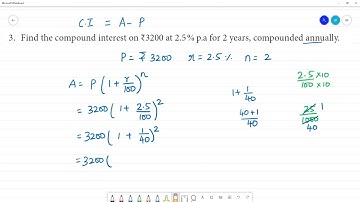 C.I = A - P
3. Find the compound interest on ₹3200 at 2.5% p.a for 2 years, compounded annually.
P = ₹ 3200 r = 2.5% n = 2
A = P(1 + r/100)^n
= 3200(1 + 2.5/100)^2
= 3200(1 + 1/40)^2
= 3200(
1 + 1/40
40+1/40
2.5 × 10/100 × 10
25 1/1000 40